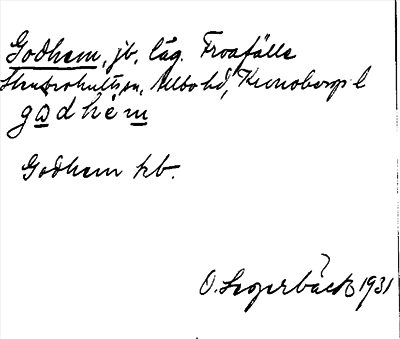 Godhem, jb, läg. Froafälle
Stenbrohults sn, Allbo hd, Kronobergs l
godhem
Godhem kb.
O. Segerbäck 1931